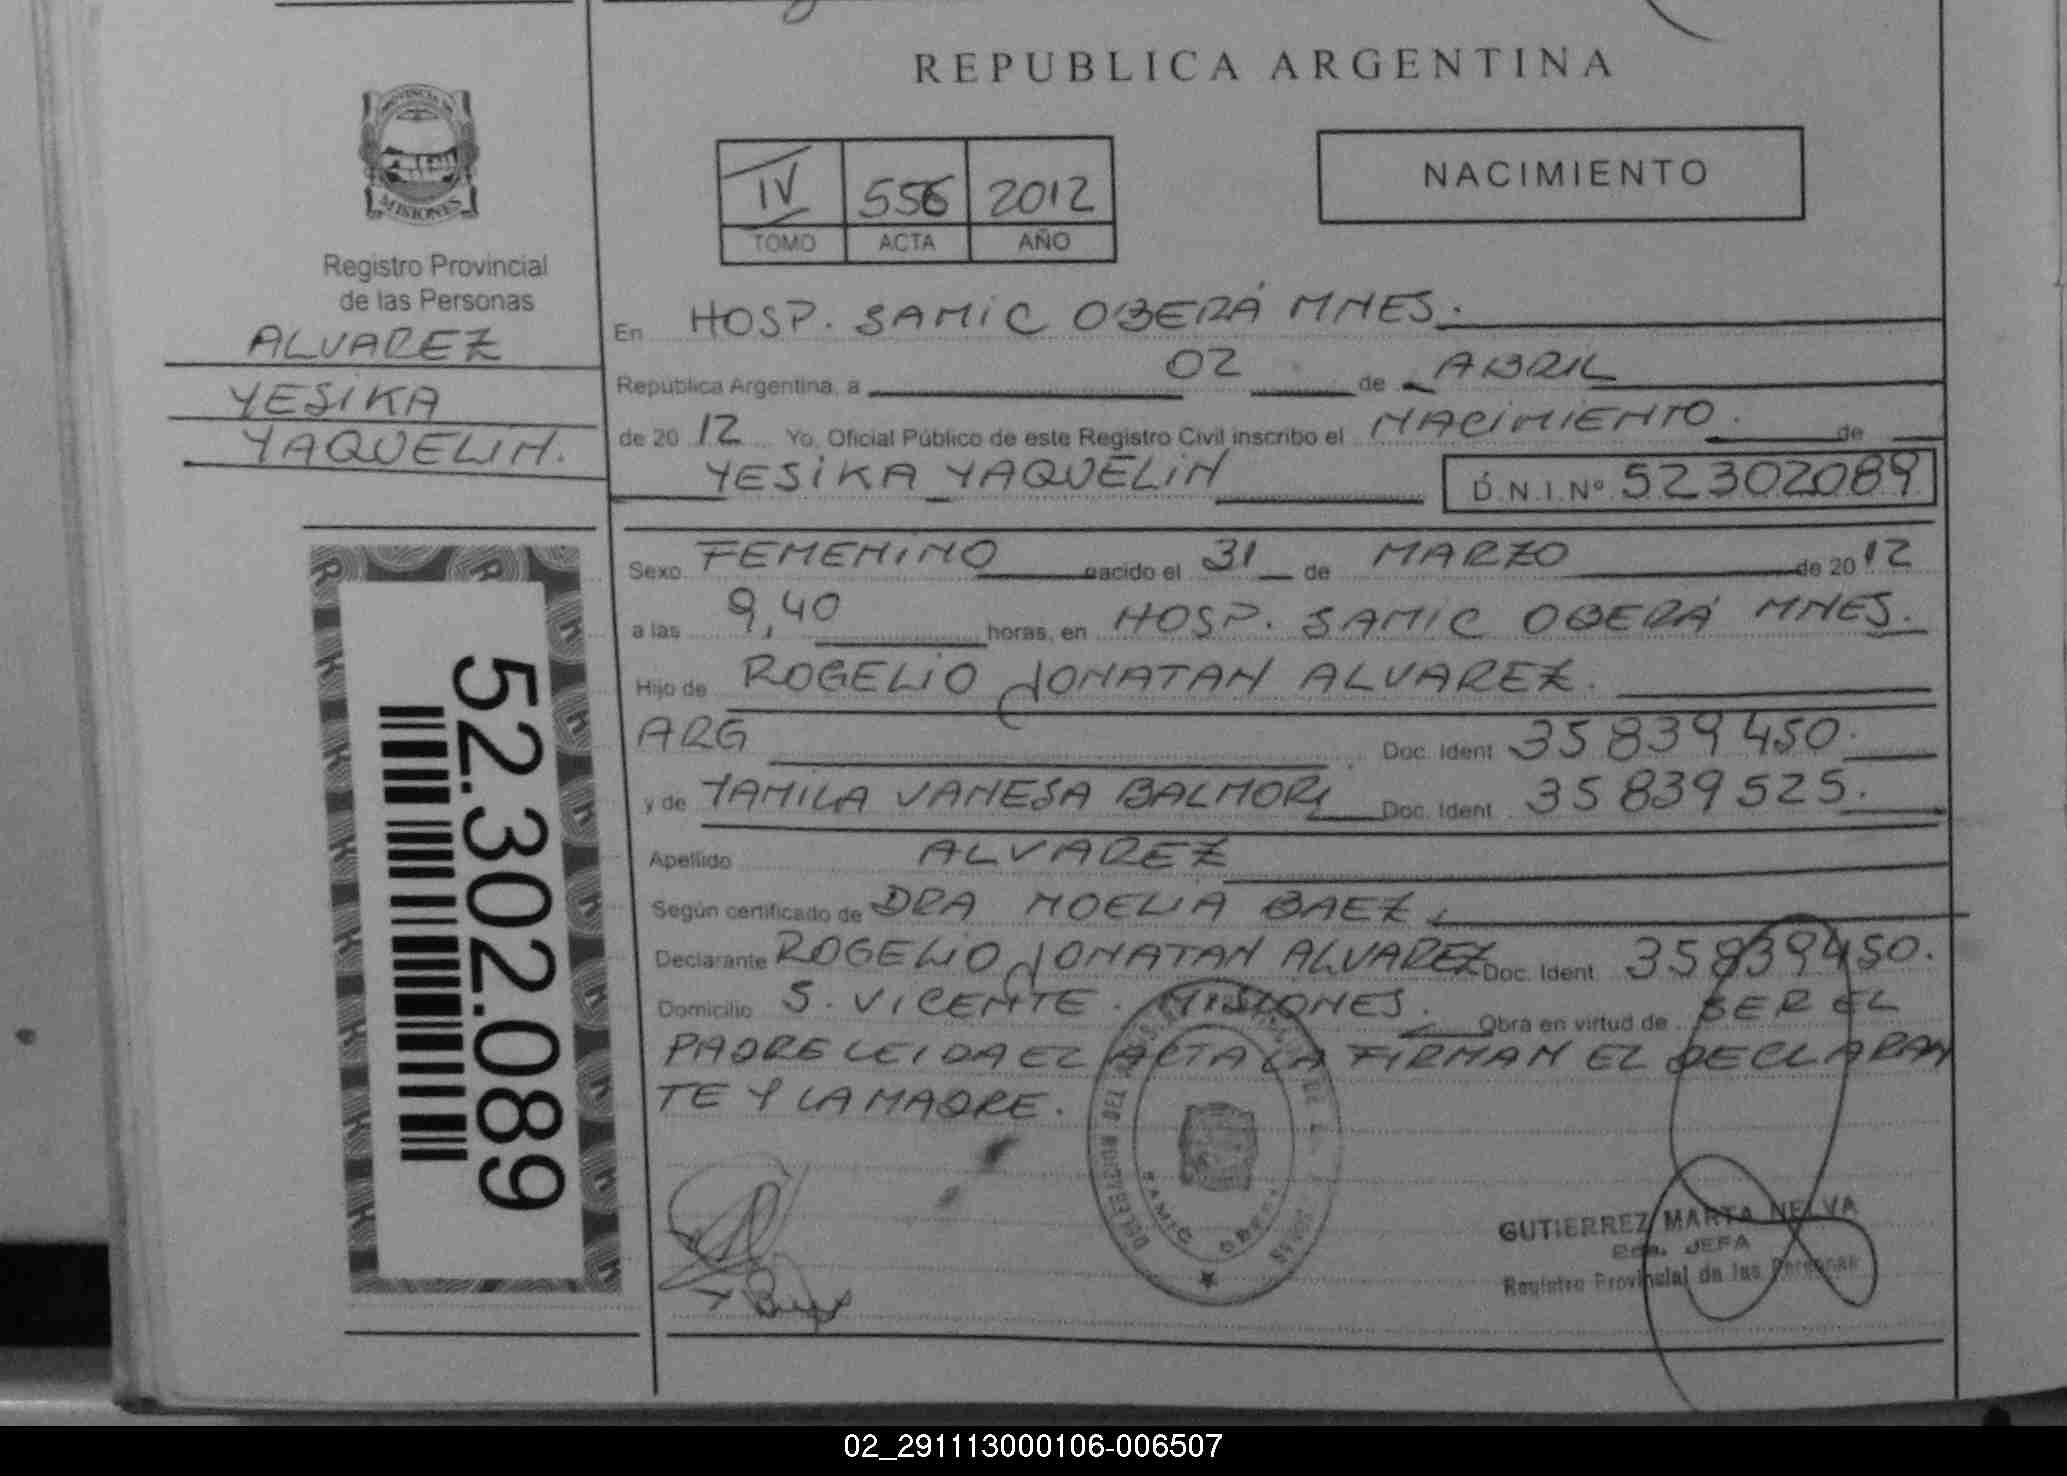 REPUBLICA ARGENTINA
PROVINCIA DE
MISIONES
Registro Provincial
de las Personas
ALVAREZ
YESIKA
YAQUELIN.
IV 556 2012
TOMO ACTA AÑO
NACIMIENTO
En HOSP. SAMIC OBERÁ MNES.
República Argentina, a 02 de ABRIL
de 20 12 Yo, Oficial Público de este Registro Civil inscribo el NACIMIENTO. de
YESIKA YAQUELIN D.N.I.Nº 52302089
Sexo FEMENINO nacido el 31 de MARZO de 20 12
a las 9,40 horas, en HOSP. SAMIC OBERÁ MNES.
Hijo de ROGELIO JONATAN ALVAREZ.
ARG Doc. Ident 35839450.
y de YAMILA VANESA BALMORI Doc. Ident 35839525.
Apellido ALVAREZ
Según certificado de DRA NOELIA BAEZ.
Declarante ROGELIO JONATAN ALVAREZ Doc. Ident. 35839450.
Domicilio S. VICENTE. MISIONES. Obra en virtud de SER EL
PADRE LEIDA EL ACTA LA FIRMAN EL DECLARAN
TE Y LA MADRE.
52.302.089
GUTIERREZ MARTA NELVA
JEFA
Registro Provincial de las Personas
02_291113000106-006507